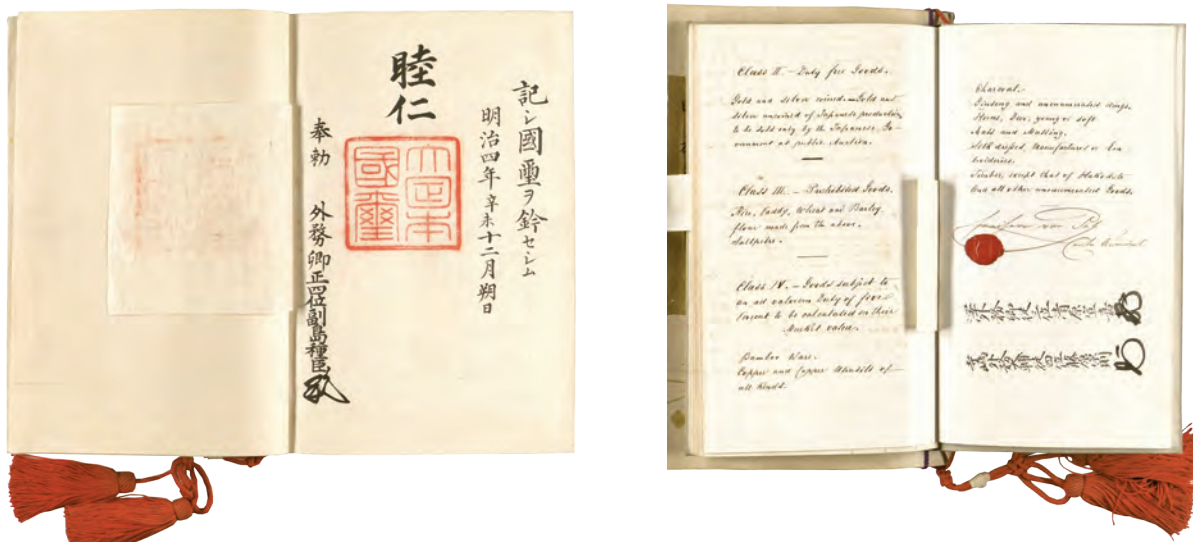 記シ國璽ヲ鈐セシム
明治四年辛未十二月朔日
睦仁
大日本國璽
奉勅 外務卿正四位副島種臣
Class II. – Duty free Goods.
Gold and silver coined. – Gold and
silver uncoined of Japanese production
to be sold only by the Japanese Go-
vernment at public Auction.
Class III. – Prohibited Goods.
Rice, Paddy, Wheat and Barley
flour made from the above.
Saltpetre.
Class IV. – Goods subject to
an ad valorem Duty of five
Percent to be calculated on their
Market value.
Bamboo Ware.
Copper and Copper Utensils of
all kinds.
Charcoal.
Ginseng and unenumerated drugs.
Horns, Deer, young or soft
Mats and Matting.
Silk dresses, Manufactures or Em
broideries.
Timber, except that of Hakodate
And all other unenumerated Goods.